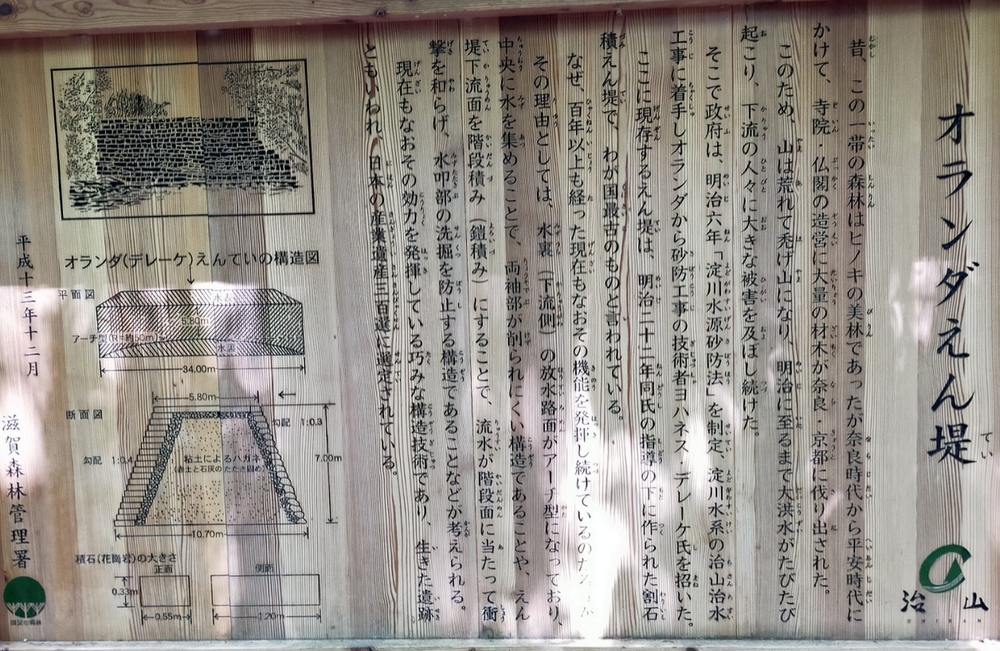 オランダえん堤
昔、この一帯の森林はヒノキの美林であったが奈良時代から平安時代に
かけて、寺院・仏閣の造営に大量の材木が奈良・京都に伐り出された。
このため、山は荒れて禿げ山になり、明治に至るまで大洪水がたびたび
起こり、下流の人々に大きな被害を及ぼし続けた。
そこで政府は、明治六年「淀川水源砂防法」を制定、淀川水系の治山治水
工事に着手しオランダから砂防工事の技術者ヨハネス・デレーケ氏を招いた。
ここに現存するえん堤は、明治二十二年同氏の指導の下に作られた割石
積えん堤で、わが国最古のものと言われている。
なぜ、百年以上も経った現在もなおその機能を発揮し続けているのだ
その理由としては、水裏（下流側）の放水路面がアーチ型になっており、
中央に水を集めることで、両袖部が削られにくい構造であることや、えん
堤下流面を階段積み（鎧積み）にすることで、流水が階段面に当たって衝
撃を和らげ、水叩部の洗掘を防止する構造であることなどが考えられる。
現在もなおその効力を発揮している巧みな構造技術であり、生きた遺跡
ともいわれ、日本の産業遺産三百選に選定されている。
治山
オランダ(デレーケ)えんていの構造図
平面図
水表
5.80m
アーチ型(R=約50m)
水裏
34.00m
断面図
5.80m
勾配 1:0.3
勾配 1:0.4
7.00m
粘土によるハガネ
(赤土と石灰のたたき固め)
10.70m
積石(花崗岩)の大きさ
正面
側面
0.33m
0.55m
1.20m
平成十三年十二月
滋賀森林管理署